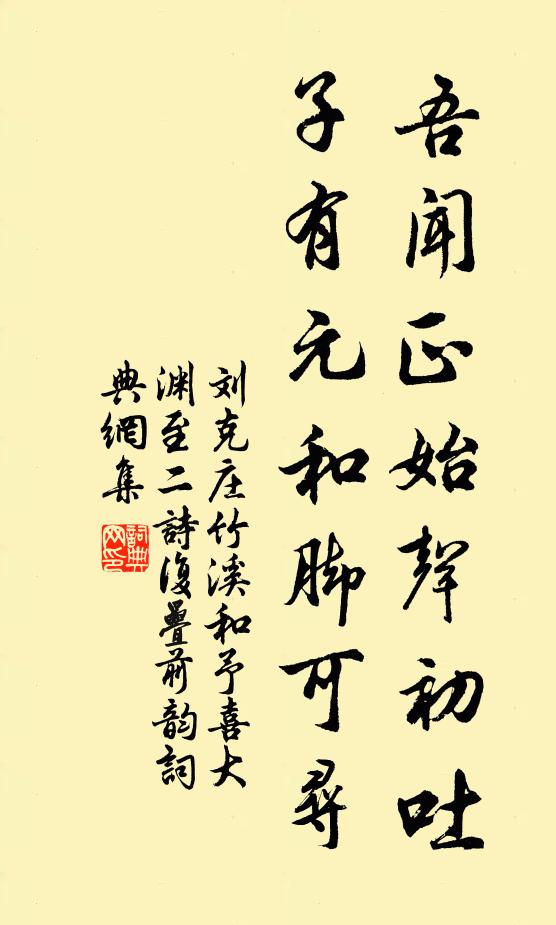 吾闻正始聲初吐
子有元和脚可尋
刘克庄竹溪和予喜大
渊至二詩復疊前韵詞
典網集
詞典网印